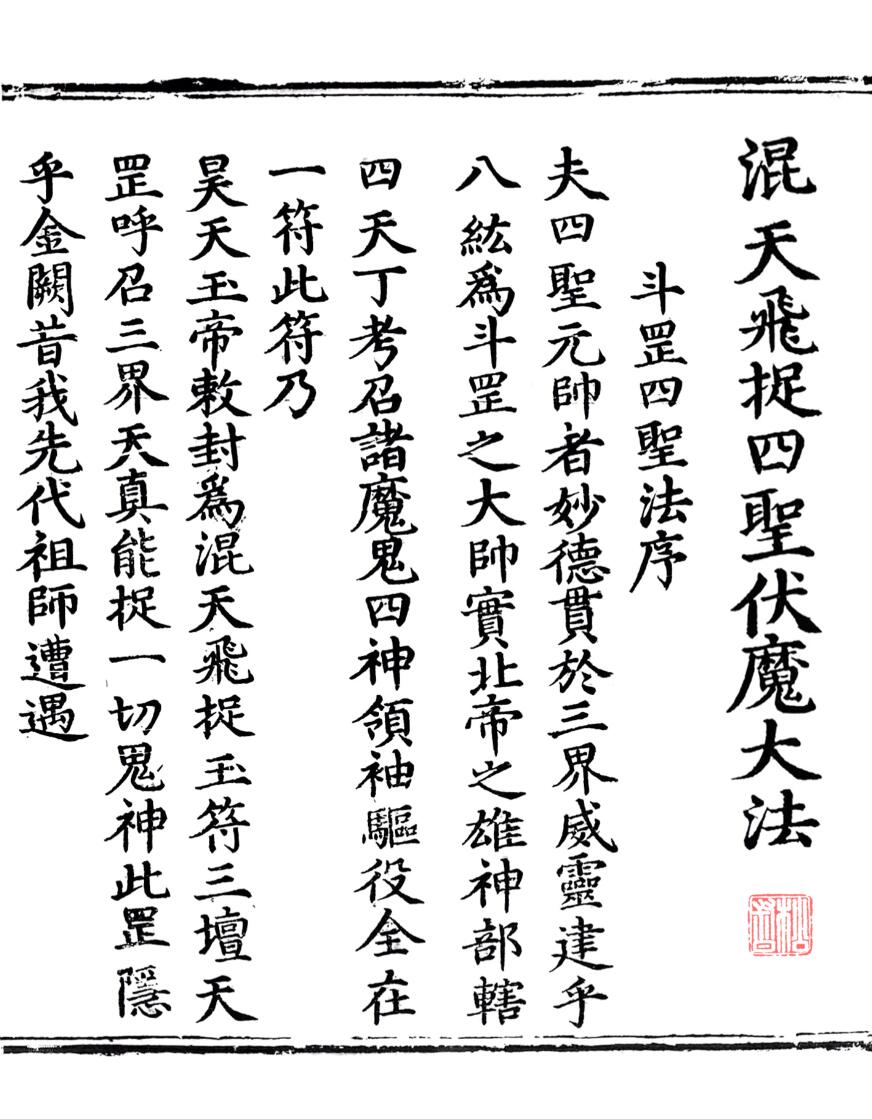 混天飛捉四聖伏魔大法
斗罡四聖法序
夫四聖元帥者妙德貫於三界威靈建乎
八紘為斗罡之大帥實北帝之雄神部轄
四天丁考召諸魔鬼四神領袖驅役全在
一符此符乃
昊天玉帝敕封為混天飛捉玉符三壇天
罡呼召三界天真能捉一切鬼神此罡隱
乎金闕昔我先代祖師遭遇